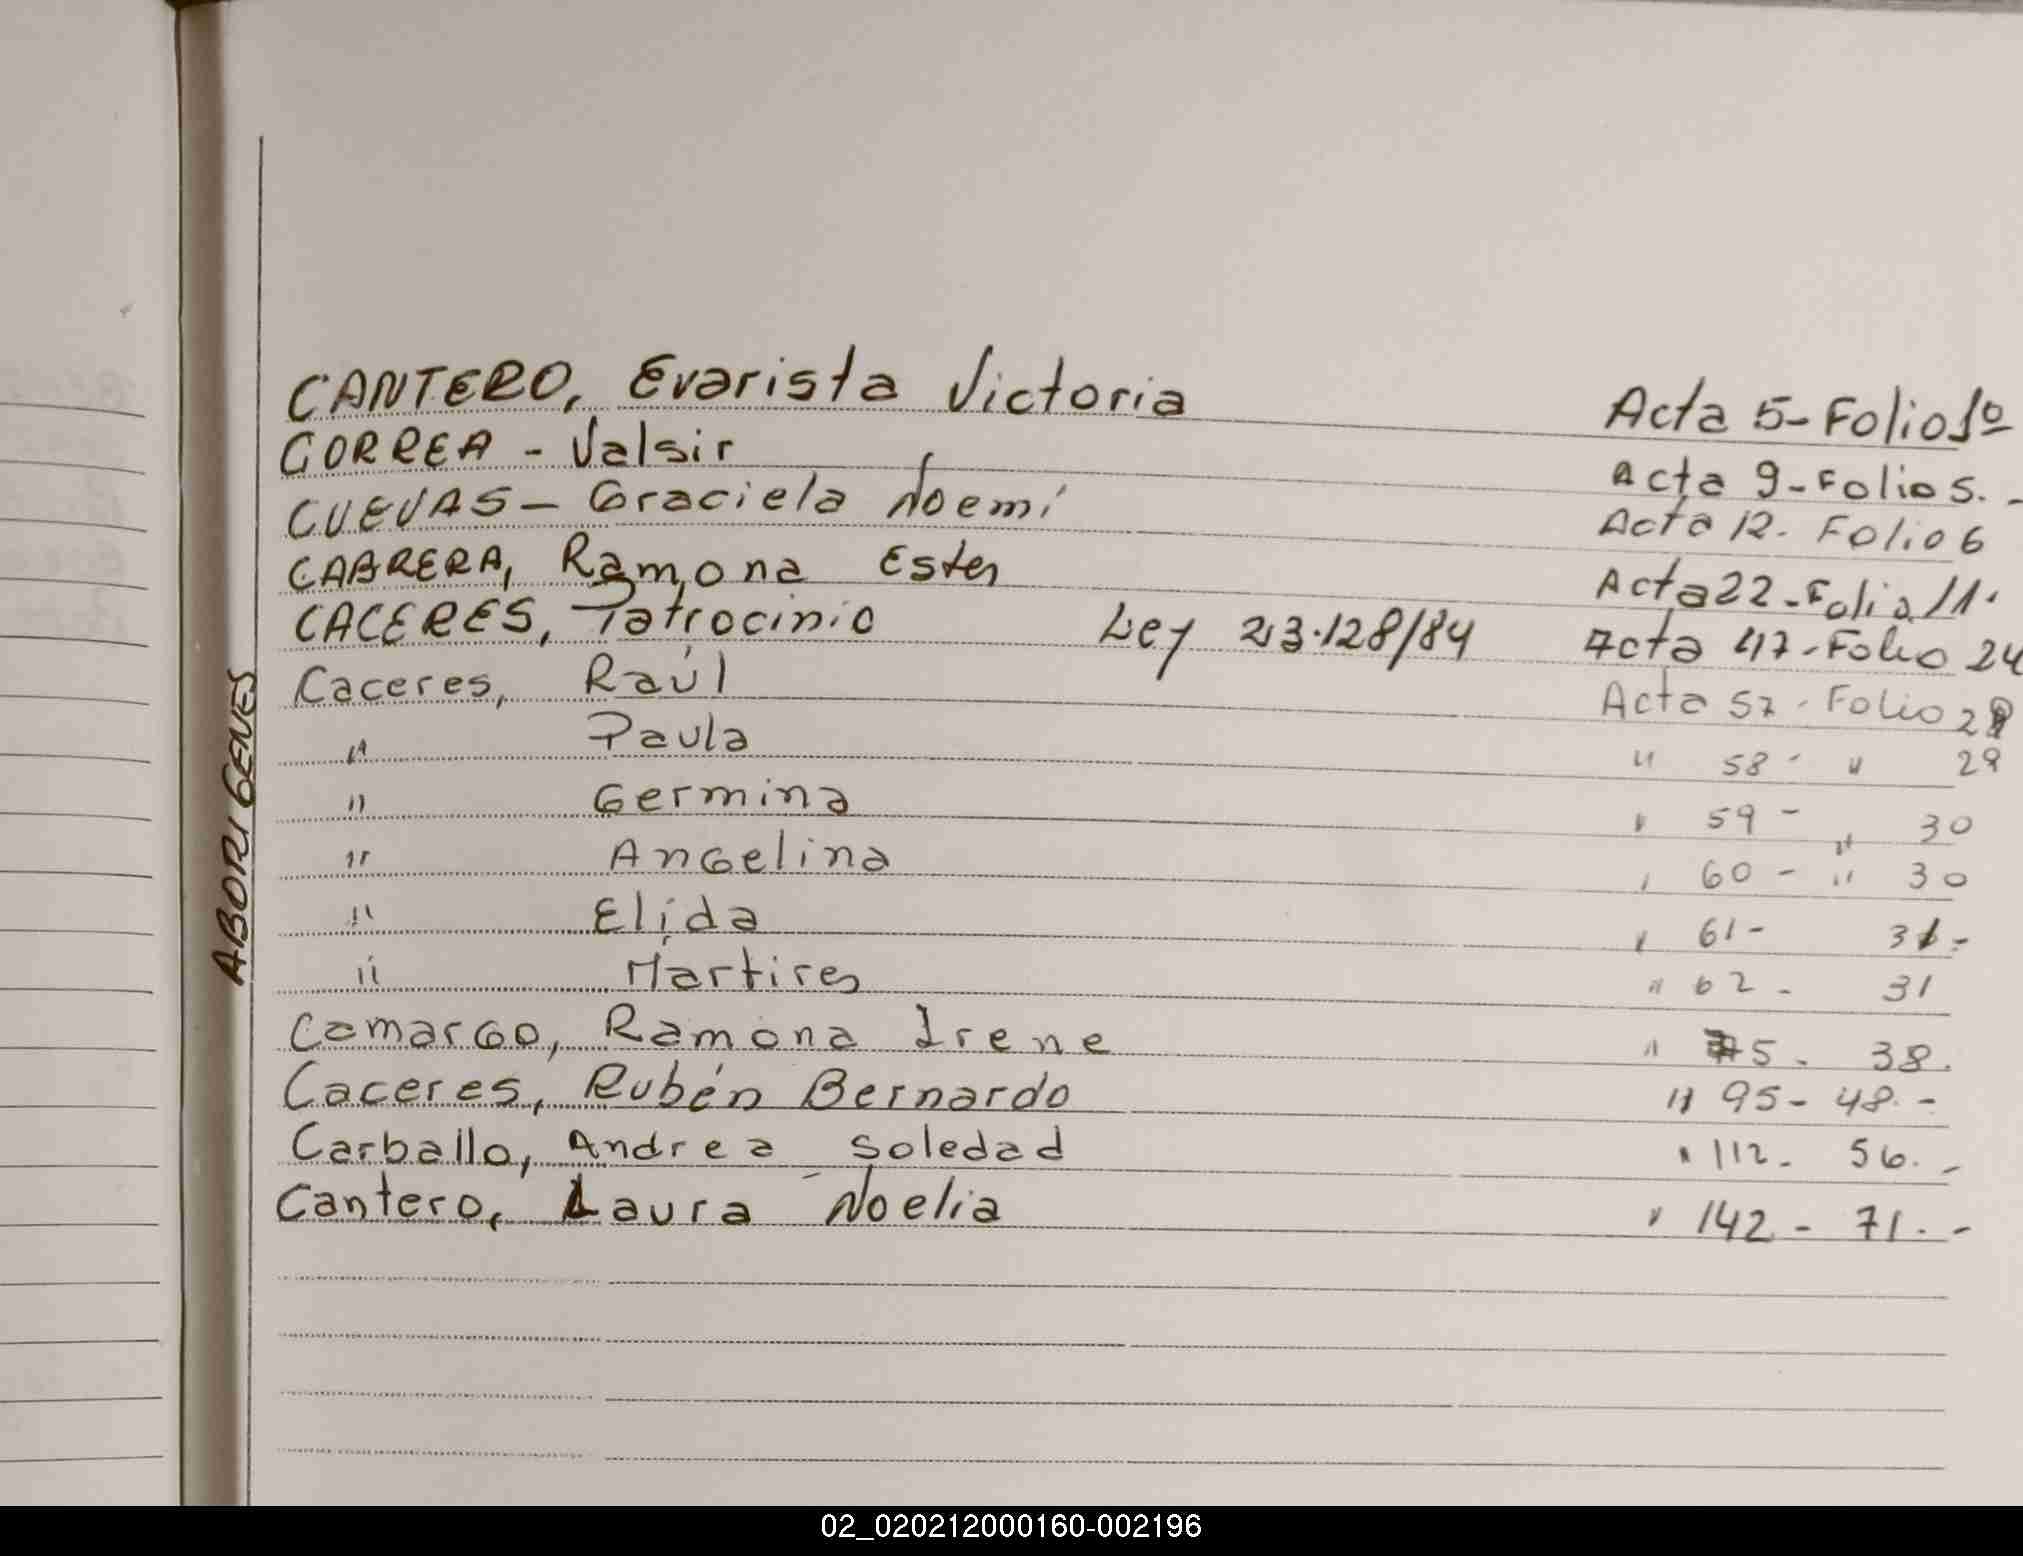 CANTERO, Evarista Victoria Acta 5-Folio 1º
CORREA - Valsir Acta 9-Folio 5.-
CUEVAS - Graciela Noemí Acta 12. Folio 6
CABRERA, Ramona Ester Acta 22-Folio 11.
CACERES, Patrocinio Ley 23.128/84 Acta 47-Folio 24
Caceres, Raúl Acta 57-Folio 29
" Paula " 58- " 29
" Germina " 59- " 30
" Angelina " 60- " 30
" Elida " 61- 31-
" Martires " 62- 31
Camargo, Ramona Irene " 75. 38.
Caceres, Rubén Bernardo " 95- 48.-
Carballo, Andrea Soledad " 112. 56.-
Cantero, Laura Noelia " 142- 71.-
ABORIGENES
02_020212000160-002196